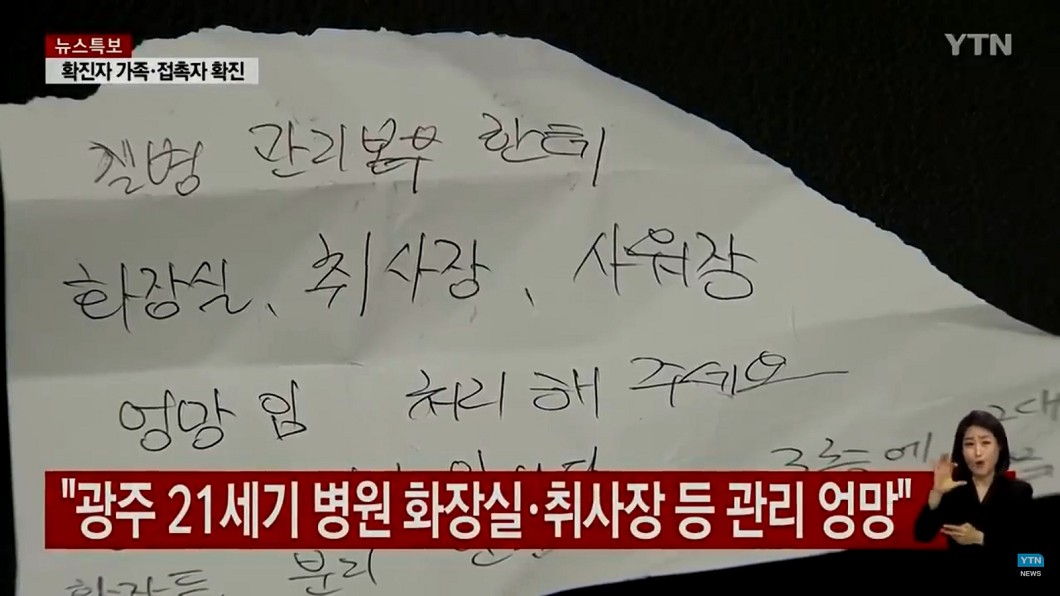 뉴스특보
YTN
확진자 가족·접촉자 확진
질병 관리본부 한테
화장실、취사장、사워장
엉망 임 처리 해 주세요
3층에
"광주 21세기 병원 화장실·취사장 등 관리 엉망"
분리
YTN
NEWS